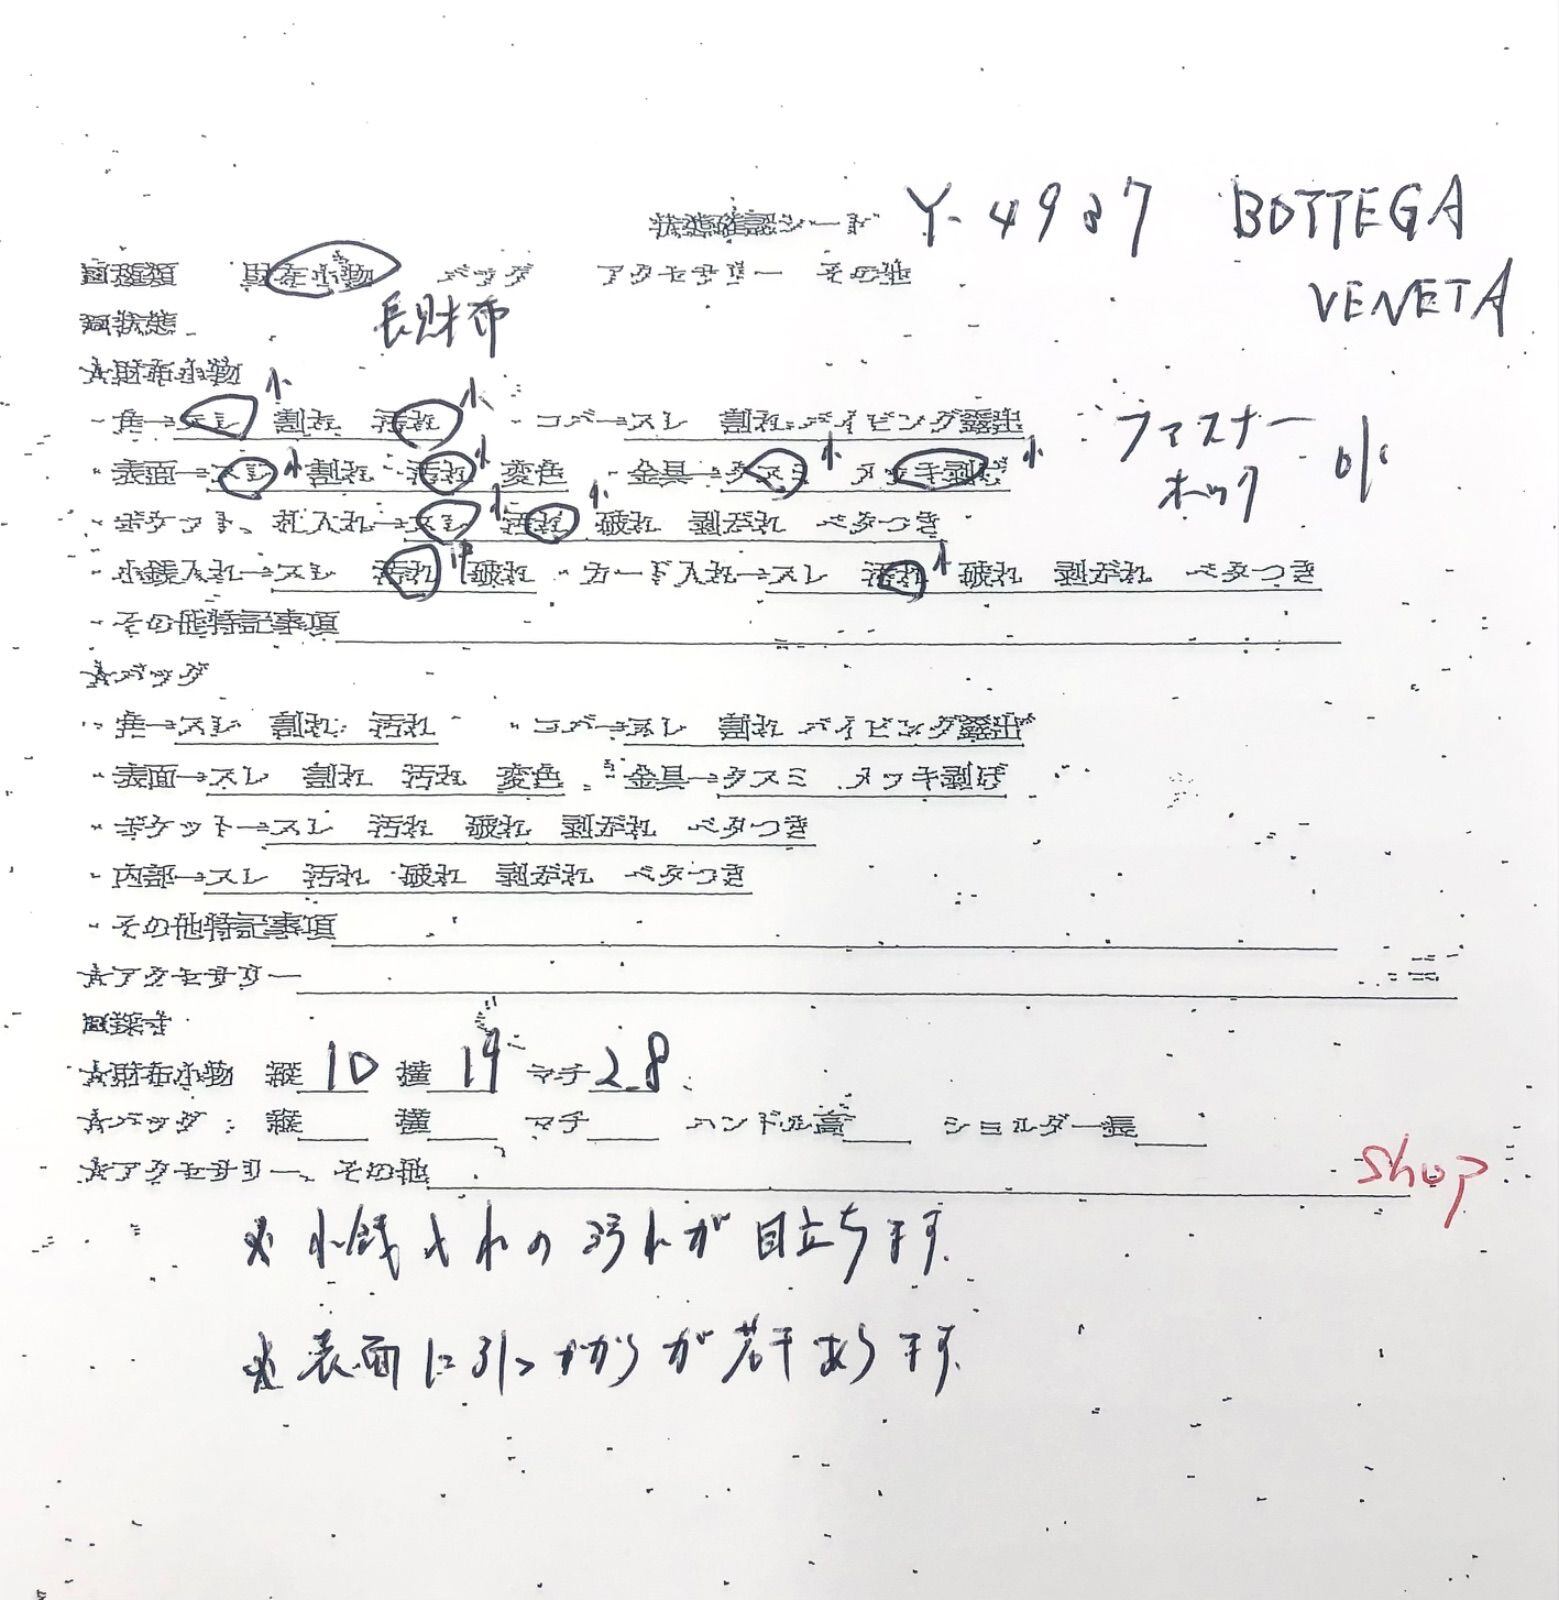 状態確認シート Y-4937 BOTTEGA VENETA
□種類 財布小物 バッグ アクセサリー その他
長財布
□状態
☆財布小物
・角→スレ小 割れ 汚れ小 ・コバ→スレ 割れ パイピング露出
・表面→スレ小 割れ 汚れ小 変色 ・金具→クスミ小 メッキ剥げ小
ファスナー
ホック ok
・ポケット、札入れ→スレ小 汚れ小 破れ 剥がれ ベタつき
・小銭入れ→スレ 汚れ中 破れ ・カード入れ→スレ 汚れ小 破れ 剥がれ ベタつき
・その他特記事項
☆バッグ
・角→スレ 割れ 汚れ ・コバ→スレ 割れ パイピング露出
・表面→スレ 割れ 汚れ 変色 ・金具→クスミ メッキ剥げ
・ポケット→スレ 汚れ 破れ 剥がれ ベタつき
・内部→スレ 汚れ 破れ 剥がれ ベタつき
・その他特記事項
☆アクセサリー
□採寸
☆財布小物 縦 10 横 19 マチ 2.8
☆バッグ 縦 横 マチ ハンドル高 ショルダー長
☆アクセサリー、その他
shop
※小銭入れの汚れが目立ちます。
※表面に引っかかりが若干あります。